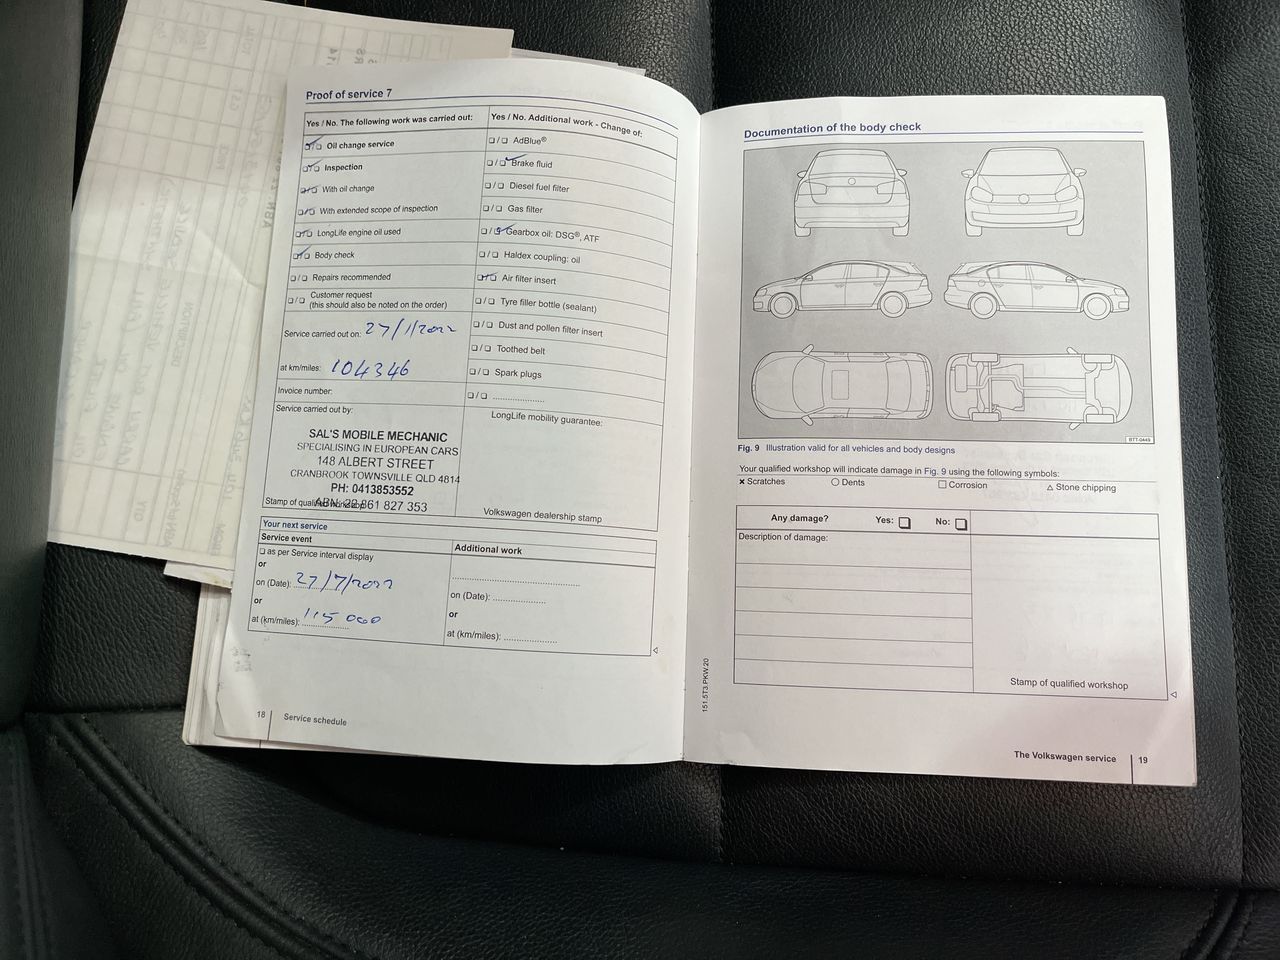 Proof of service 7
Yes / No. The following work was carried out:
Oil change service
Inspection
With oil change
With extended scope of inspection
LongLife engine oil used
Body check
Repairs recommended
Customer request
(this should also be noted on the order)
Service carried out on: 27/1/2022
at km/miles: 104346
Invoice number:
Service carried out by:
SAL'S MOBILE MECHANIC
SPECIALISING IN EUROPEAN CARS
148 ALBERT STREET
CRANBROOK TOWNSVILLE QLD 4814
PH: 0413853552
ABN: 32 861 827 353
Stamp of qualified workshop
Yes / No. Additional work - Change of:
AdBlue®
Brake fluid
Diesel fuel filter
Gas filter
Gearbox oil: DSG®, ATF
Haldex coupling: oil
Air filter insert
Tyre filler bottle (sealant)
Dust and pollen filter insert
Toothed belt
Spark plugs
LongLife mobility guarantee:
Volkswagen dealership stamp
Your next service
Service event
as per Service interval display
or
on (Date): 27/7/2022
or
at (km/miles): 115 000
Additional work
on (Date):
or
at (km/miles):
18
Service schedule
Documentation of the body check
BTT-0449
Fig. 9 Illustration valid for all vehicles and body designs
Your qualified workshop will indicate damage in Fig. 9 using the following symbols:
× Scratches ○ Dents □ Corrosion △ Stone chipping
Any damage? Yes: No:
Description of damage:
Stamp of qualified workshop
151.5T3.PKW.20
The Volkswagen service
19